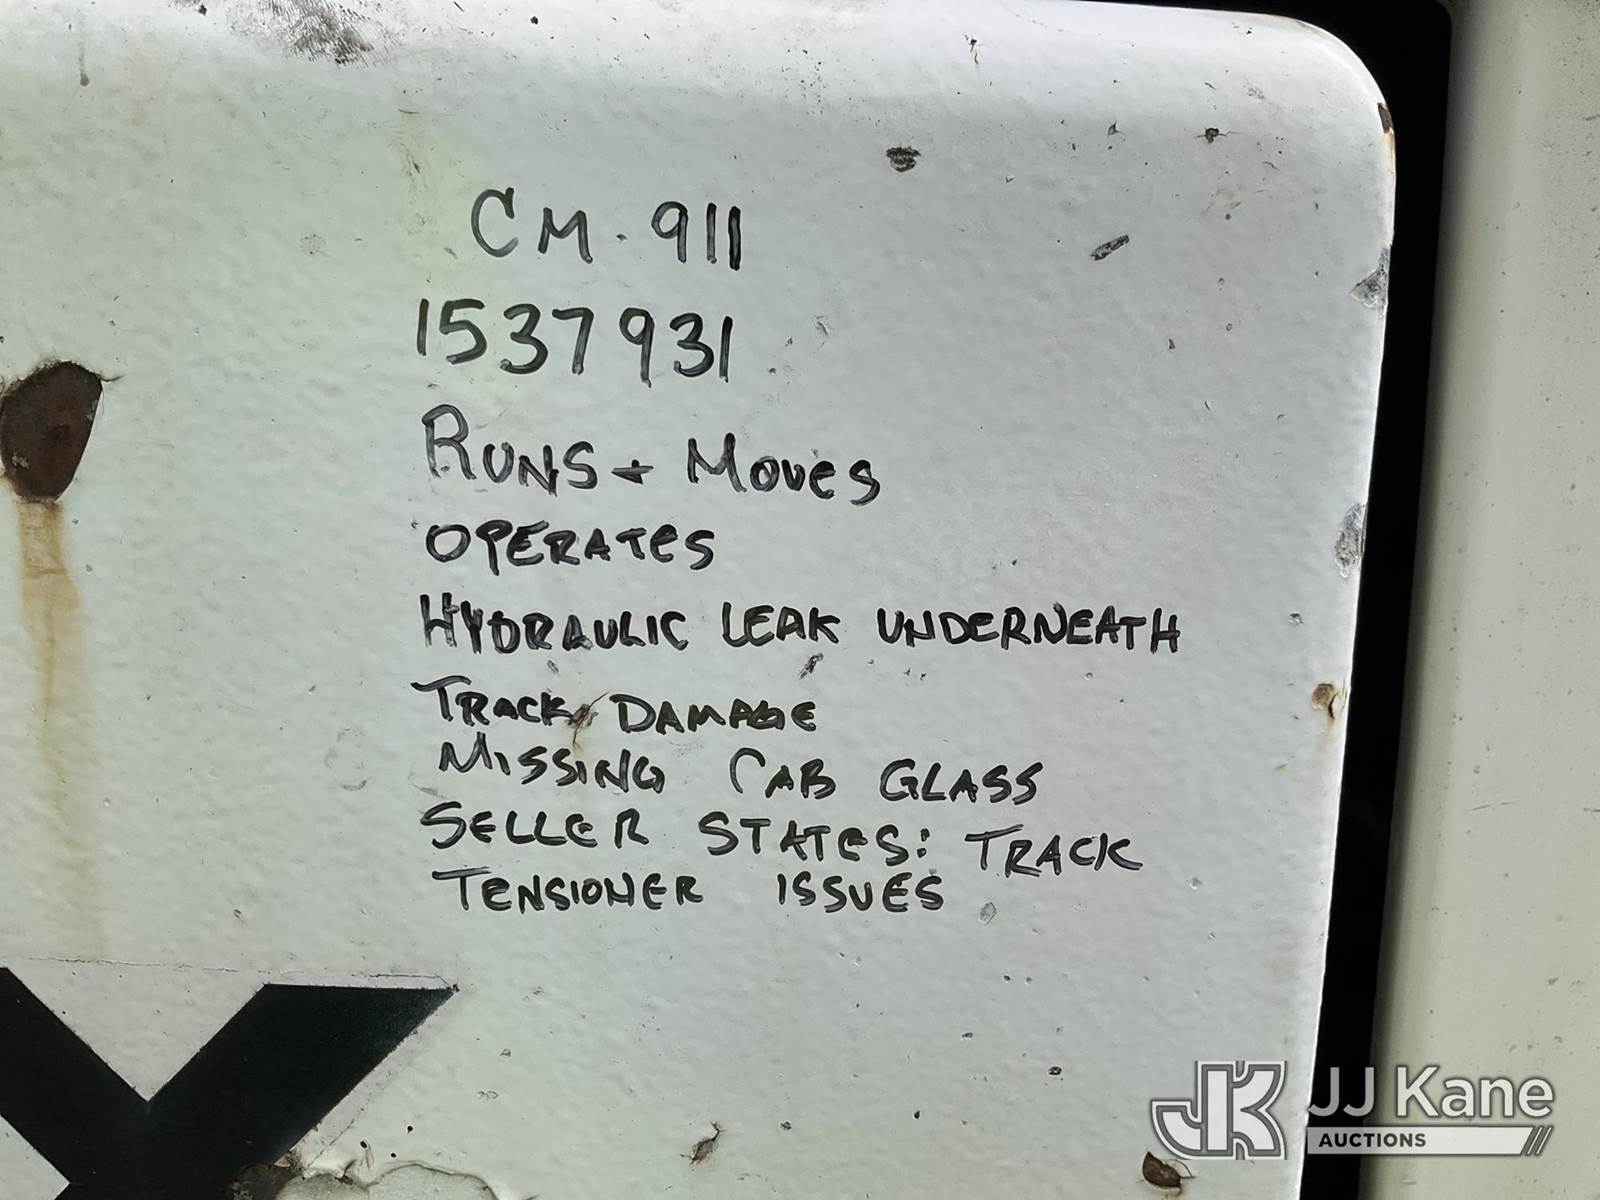 CM. 911
1537931
RUNS + MOVES
OPERATES
HYDRAULIC LEAK UNDERNEATH
TRACK DAMAGE
MISSING CAB GLASS
SELLER STATES: TRACK
TENSIONER ISSUES
JK JJ Kane
AUCTIONS